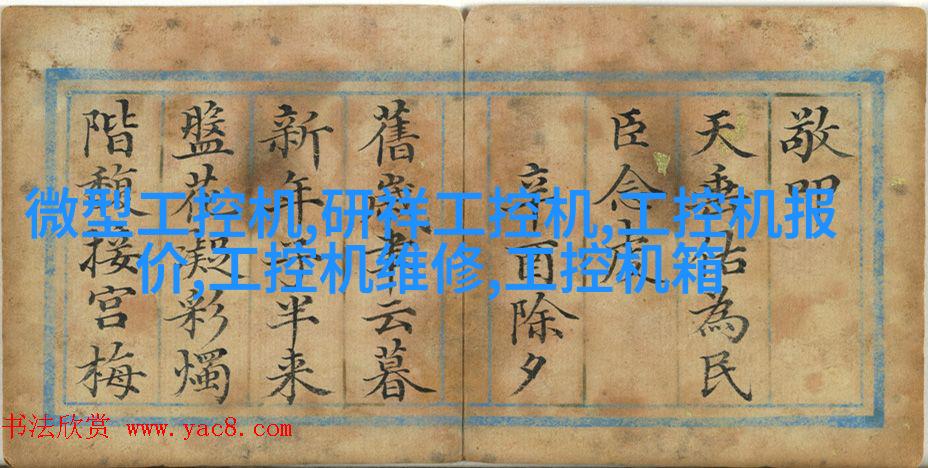 敬
天垂為民
臣念
辛酉除夕
舊歲聿云暮
新年子半来
盤花凝彩燭
階馥接宮梅
微型工控机,研祥工控机,工控机报
价,工控机维修,工控机箱
书法欣赏 www.yac8.com